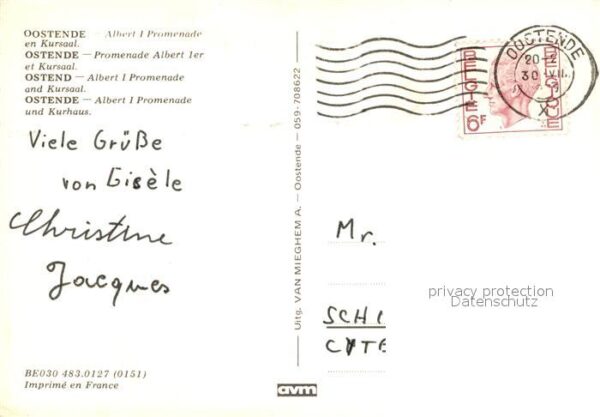 OOSTENDE — Albert I Promenade
en Kursaal.
OSTENDE — Promenade Albert 1er
et Kursaal.
OSTEND — Albert I Promenade
and Kursaal.
OSTENDE — Albert I Promenade
und Kurhaus.
Viele Grüße
von Gisèle
Christine
Jacques
BE030 483.0127 (0151)
Imprimé en France
Uitg. VAN MIEGHEM A. – Oostende – 059-708622
avm
OOSTENDE
30
X
BELGIE
BELGIQUE
6F
Mr.
privacy protection
Datenschutz
SCHI
CITE